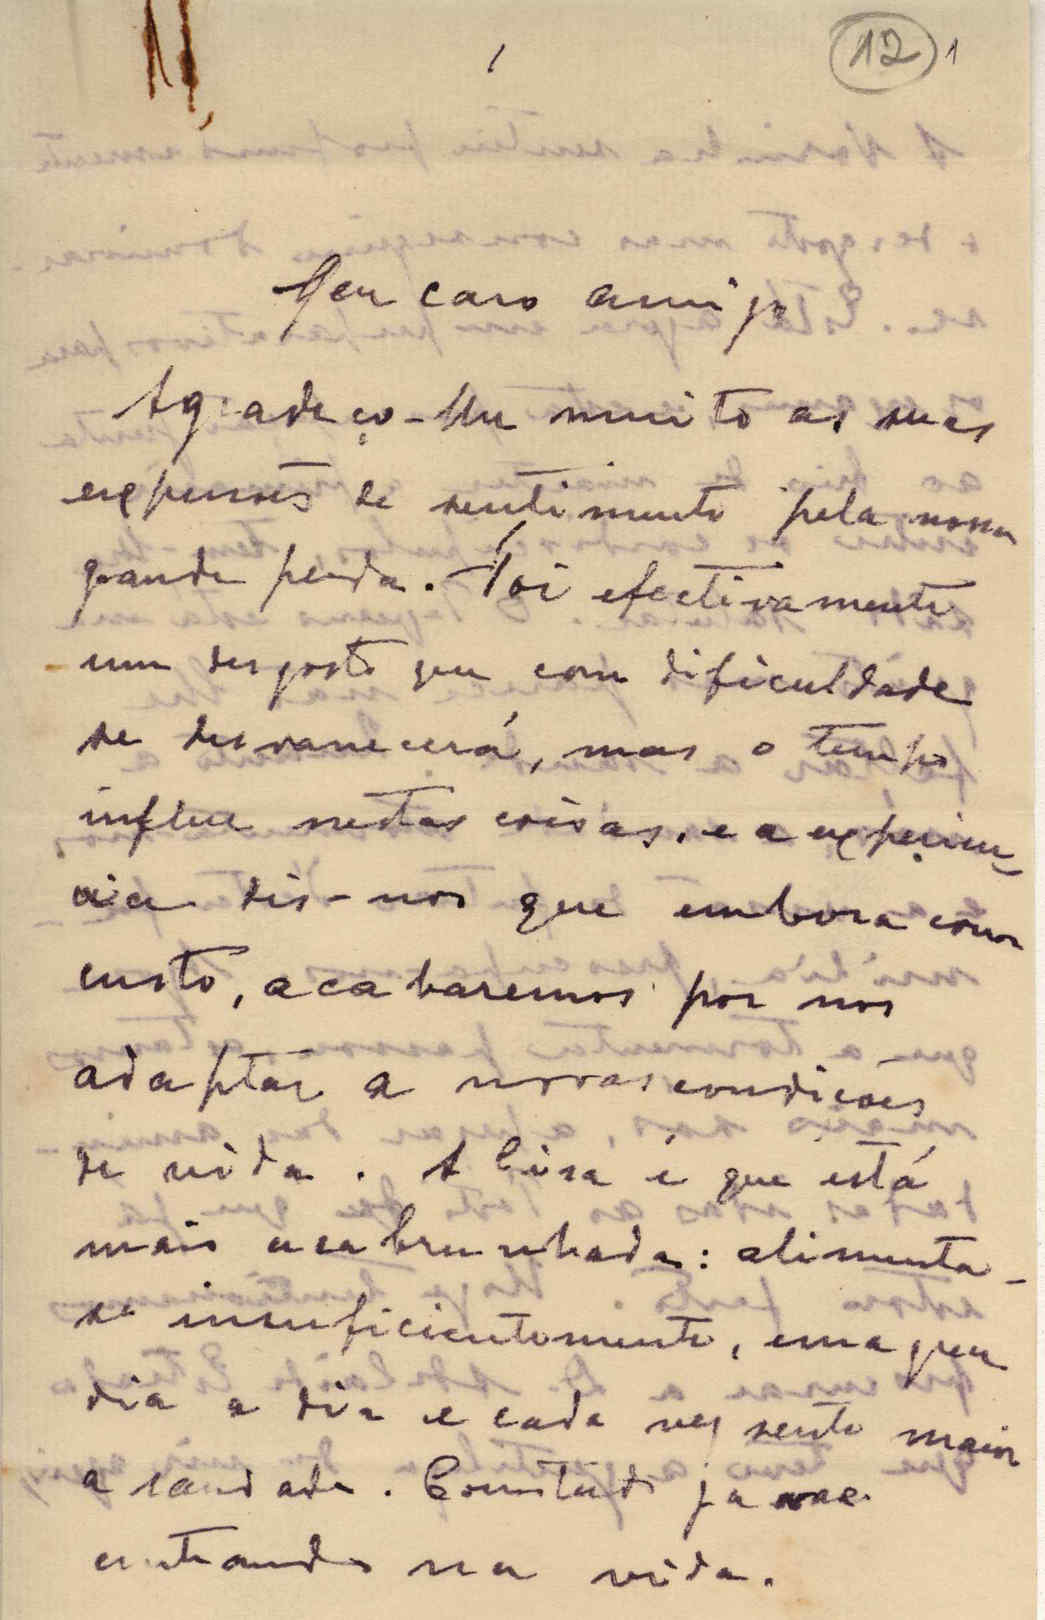 12 1
Meu caro amigo
Agradeço-lhe muito as suas
expressões de sentimento pela nossa
grande perda. Foi efectivamente
um desgosto que com dificuldade
se desvanecerá, mas o tempo
influe nestas coisas, e a experien-
cia dis-nos que embora com
custo, acabaremos por nos
adaptar a novas condições
de vida. A Lisa é que está
mais acabrunhada: alimenta-
se insuficientemente, emagrece
dia a dia e cada vez sente maior
a saudade. Comtudo ja vae
entrando na vida.